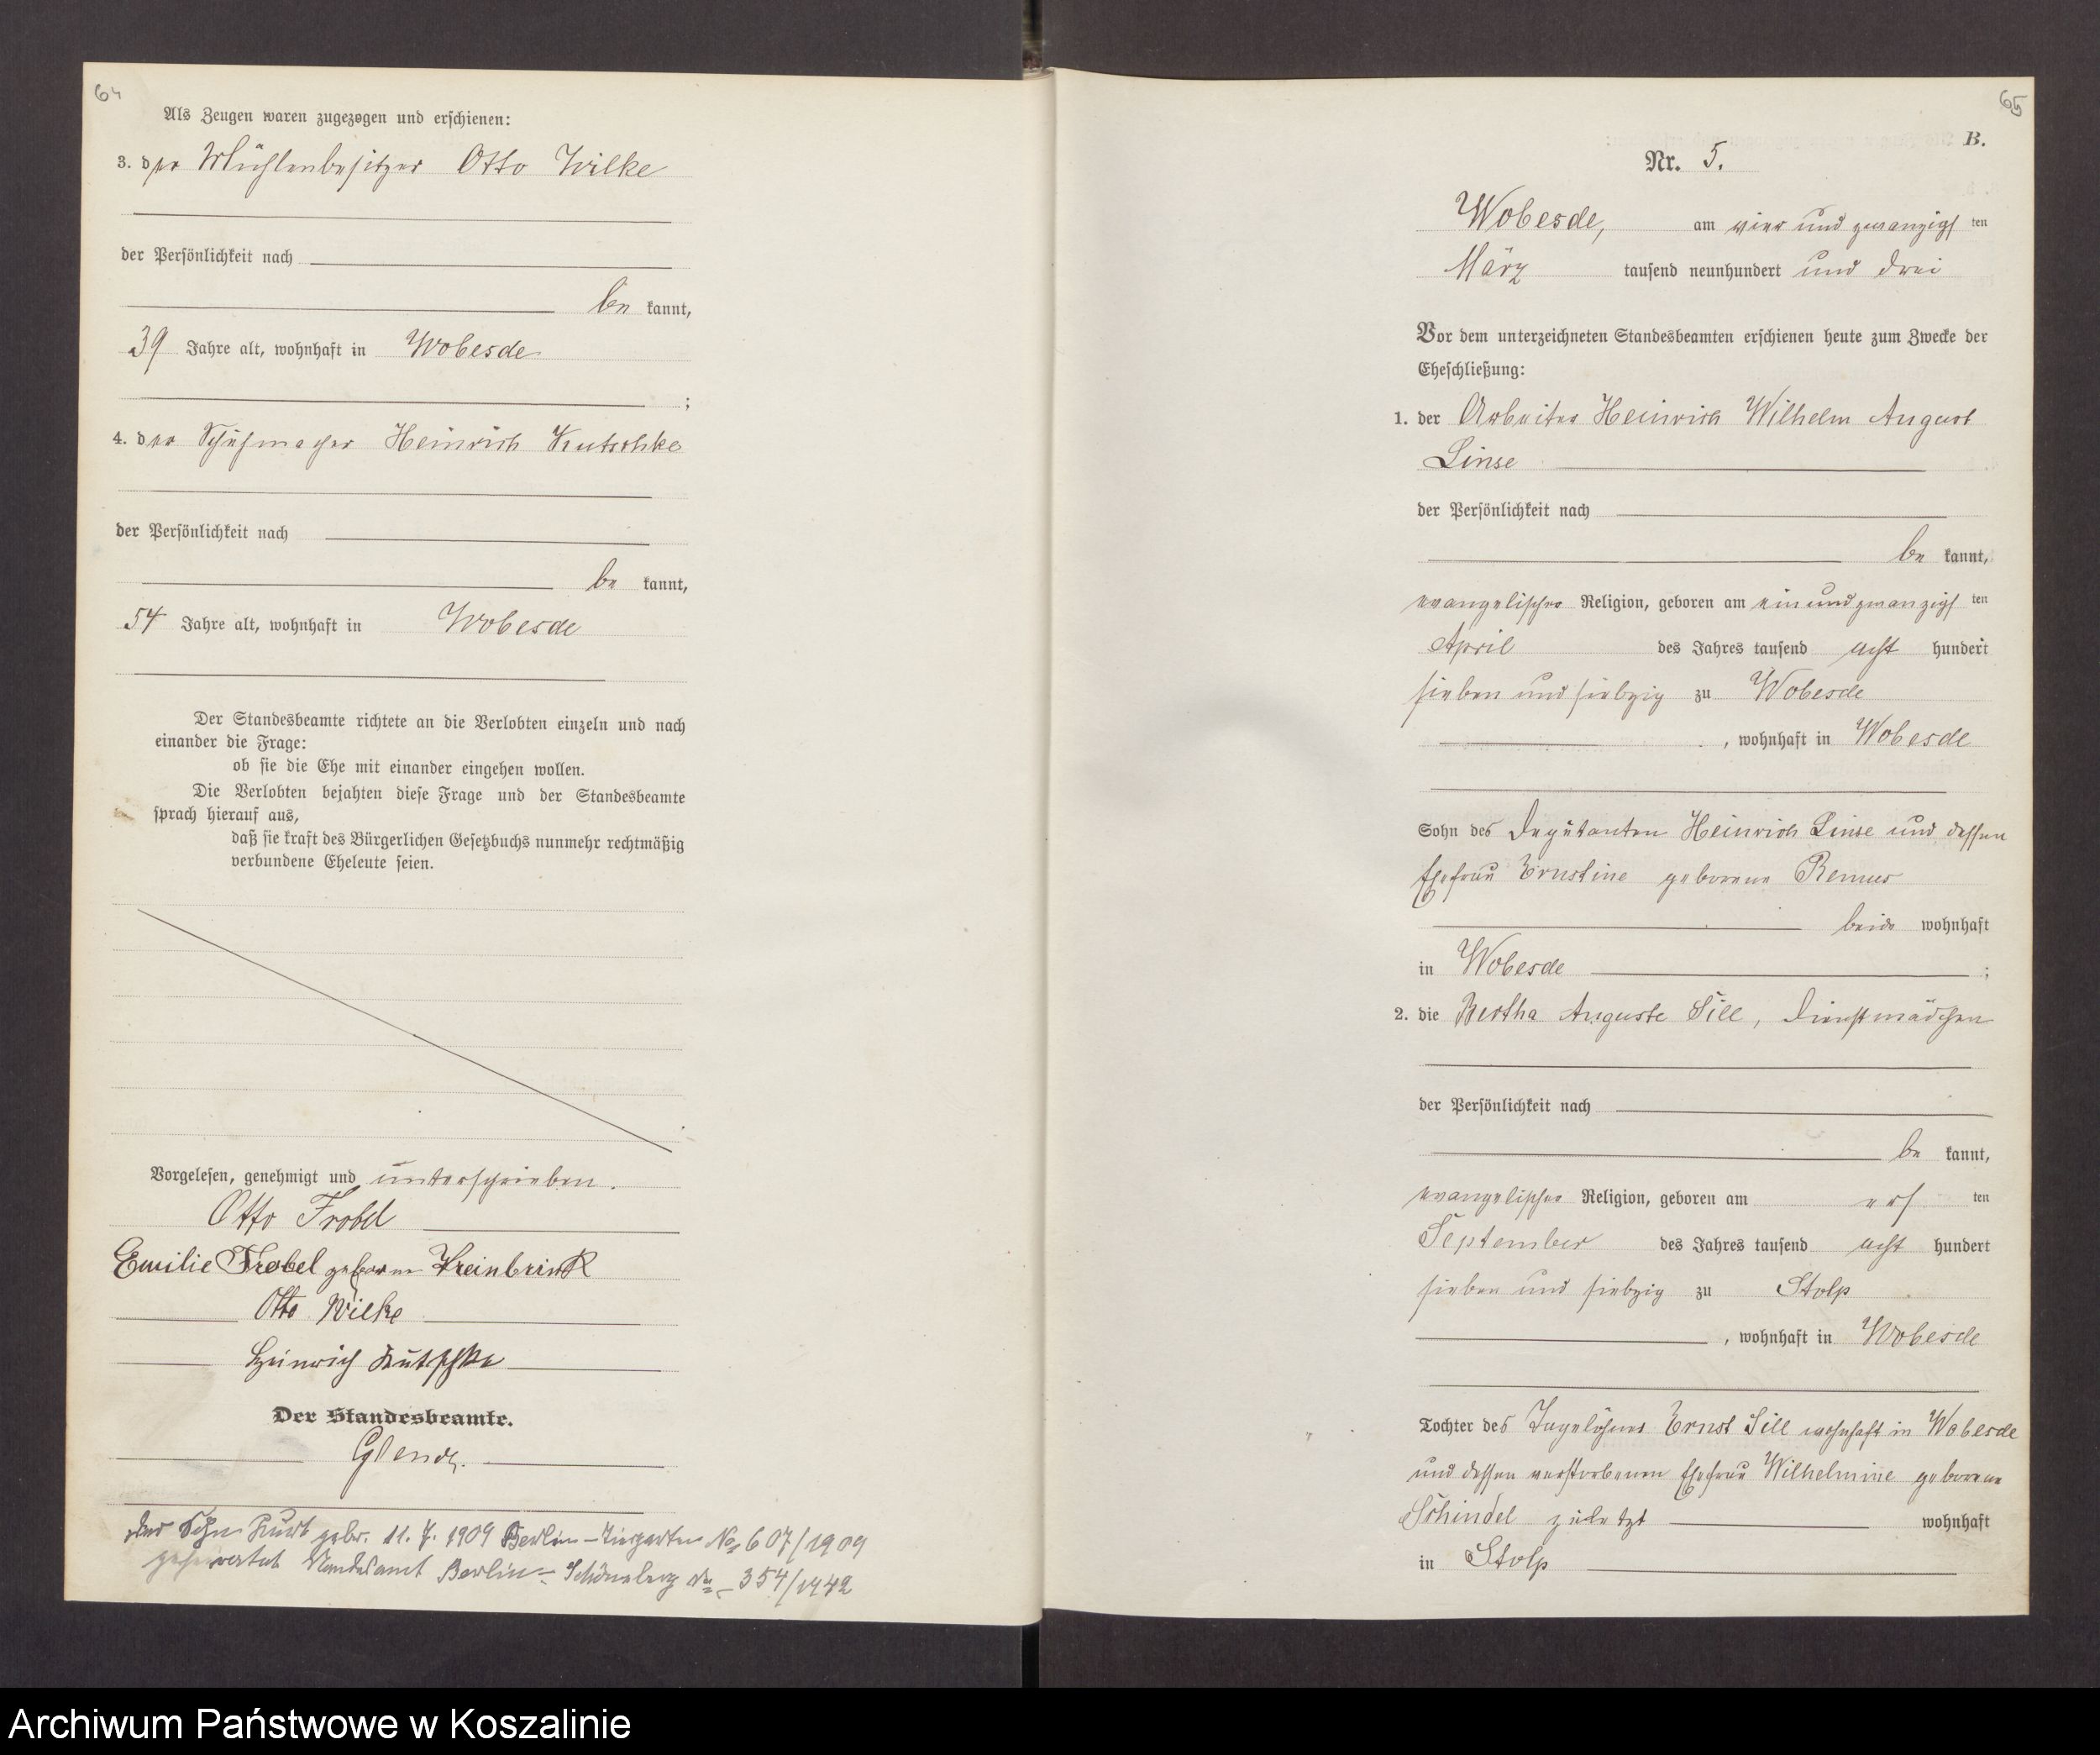 64
Als Zeugen waren zugezogen und erschienen:
3. der Mühlenbesitzer Otto Wilke
der Persönlichkeit nach
be kannt,
39 Jahre alt, wohnhaft in Wobesde
;
4. der Schuhmacher Heinrich Kutschke
der Persönlichkeit nach
be kannt,
54 Jahre alt, wohnhaft in Wobesde
Der Standesbeamte richtete an die Verlobten einzeln und nach
einander die Frage:
ob sie die Ehe mit einander eingehen wollen.
Die Verlobten bejahten diese Frage und der Standesbeamte
sprach hierauf aus,
daß sie kraft des Bürgerlichen Gesetzbuchs nunmehr rechtmäßig
verbundene Eheleute seien.
Vorgelesen, genehmigt und unterschrieben.
Otto Frobel
Emilie Frobel geborene
Otto Wilke
Heinrich Kutschke
Der Standesbeamte.
Der Sohn Kurt gebr. 11. 7. 1909 Berlin-Tiergarten No 607/1909
geheiratet Standesamt Berlin-Schöneberg No 354/1942
65
B.
Nr. 5.
Wobesde, am vier und zwanzigs ten
März tausend neunhundert und drei
Vor dem unterzeichneten Standesbeamten erschienen heute zum Zwecke der
Eheschließung:
1. der Arbeiter Heinrich Wilhelm August
Linse
der Persönlichkeit nach
be kannt,
evangelischer Religion, geboren am einundzwanzigs ten
April des Jahres tausend acht hundert
sieben und siebzig zu Wobesde
, wohnhaft in Wobesde
Sohn des Deputanten Heinrich Linse und dessen
Ehefrau Ernstine geborene Remus
beide wohnhaft
in Wobesde ;
2. die Bertha Auguste Sill, Dienstmädchen
der Persönlichkeit nach
be kannt,
evangelischer Religion, geboren am ers ten
September des Jahres tausend acht hundert
sieben und siebzig zu Stolp
, wohnhaft in Wobesde
Tochter des Tagelöhners Ernst Sill wohnhaft in Wobesde
und dessen verstorbenen Ehefrau Wilhelmine geborene
Schindel zuletzt wohnhaft
in Stolp
Archiwum Państwowe w Koszalinie